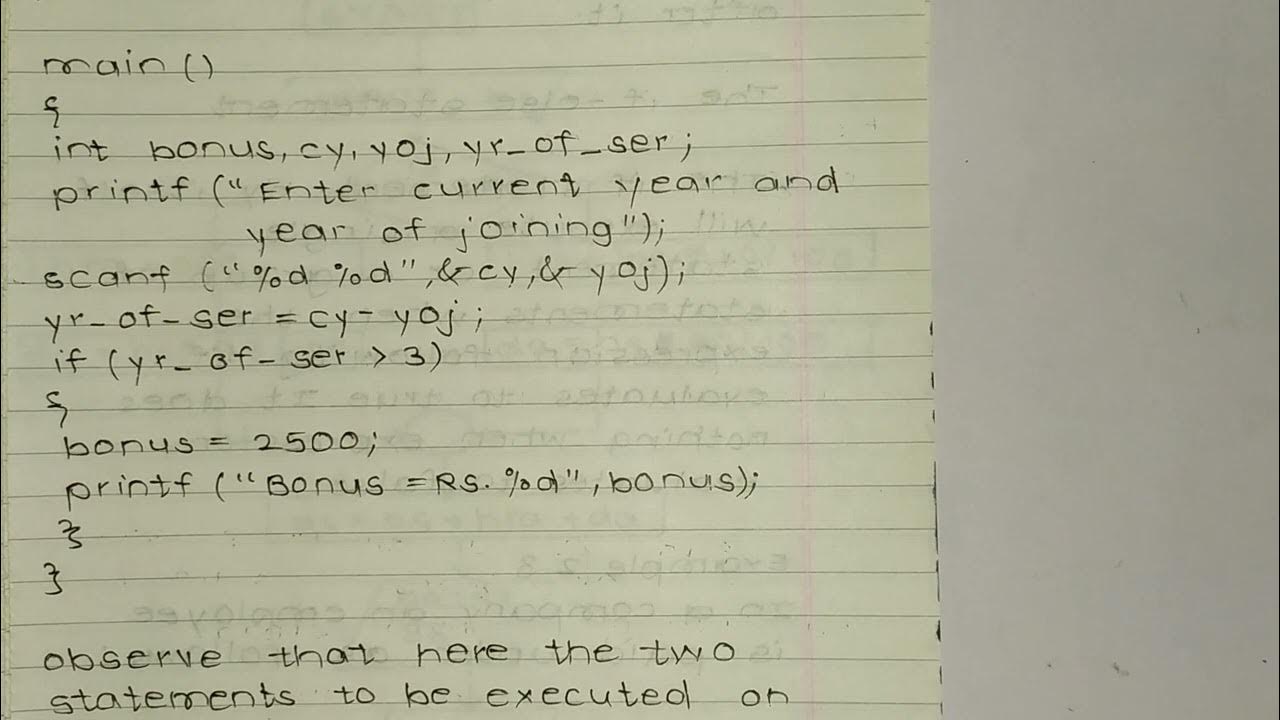 main ()
{
int bonus, cy, yoj, yr_of_ser;
printf ("Enter current year and
year of joining");
scanf ("%d %d", &cy, & yoj);
yr_of_ser = cy - yoj;
if (yr_of_ser > 3)
{
bonus = 2500;
printf ("Bonus = Rs. %d", bonus);
}
}
observe that here the two
statements to be executed on